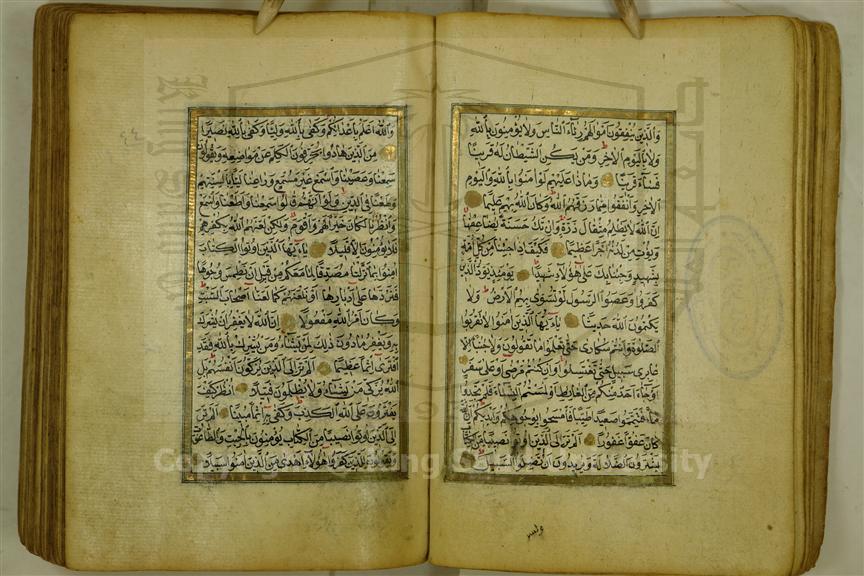 والذين ينفقون اموالهم رئاء الناس ولا يؤمنون بالله
ولا باليوم الاخر ومن يكن الشيطان له قرينا
فساء قرينا وماذا عليهم لو امنوا بالله واليوم
الاخر وانفقوا مما رزقهم الله وكان الله بهم عليما
ان الله لا يظلم مثقال ذرة وان تك حسنة يضاعفها
ويؤت من لدنه اجرا عظيما فكيف اذا جئنا من كل امة
بشهيد وجئنا بك على هؤلاء شهيدا يومئذ يود الذين
كفروا وعصوا الرسول لو تسوى بهم الارض ولا
يكتمون الله حديثا يا ايها الذين امنوا لا تقربوا
الصلوة وانتم سكارى حتى تعلموا ما تقولون ولا جنبا الا
عابري سبيل حتى تغتسلوا وان كنتم مرضى او على سفر
او جاء احد منكم من الغائط او لمستم النساء فلم تجدوا
ماء فتيمموا صعيدا طيبا فامسحوا بوجوهكم وايديكم ان الله
كان عفوا غفورا الم تر الى الذين اوتوا نصيبا من الكتاب
يشترون الضلالة ويريدون ان تضلوا السبيل
والله اعلم باعدائكم وكفى بالله وليا وكفى بالله نصيرا
من الذين هادوا يحرفون الكلم عن مواضعه ويقولون
سمعنا وعصينا واسمع غير مسمع وراعنا ليا بالسنتهم
وطعنا في الدين ولو انهم قالوا سمعنا واطعنا واسمع
وانظرنا لكان خيرا لهم واقوم ولكن لعنهم الله بكفرهم
فلا يؤمنون الا قليلا يا ايها الذين اوتوا الكتاب
امنوا بما نزلنا مصدقا لما معكم من قبل ان نطمس وجوها
فنردها على ادبارها او نلعنهم كما لعنا اصحاب السبت
وكان امر الله مفعولا ان الله لا يغفر ان يشرك
به ويغفر ما دون ذلك لمن يشاء ومن يشرك بالله فقد
افترى اثما عظيما الم تر الى الذين يزكون انفسهم بل
الله يزكي من يشاء ولا يظلمون فتيلا انظر كيف
يفترون على الله الكذب وكفى به اثما مبينا الم تر
الى الذين اوتوا نصيبا من الكتاب يؤمنون بالجبت والطاغوت
ويقولون للذين كفروا هؤلاء اهدى من الذين امنوا سبيلا